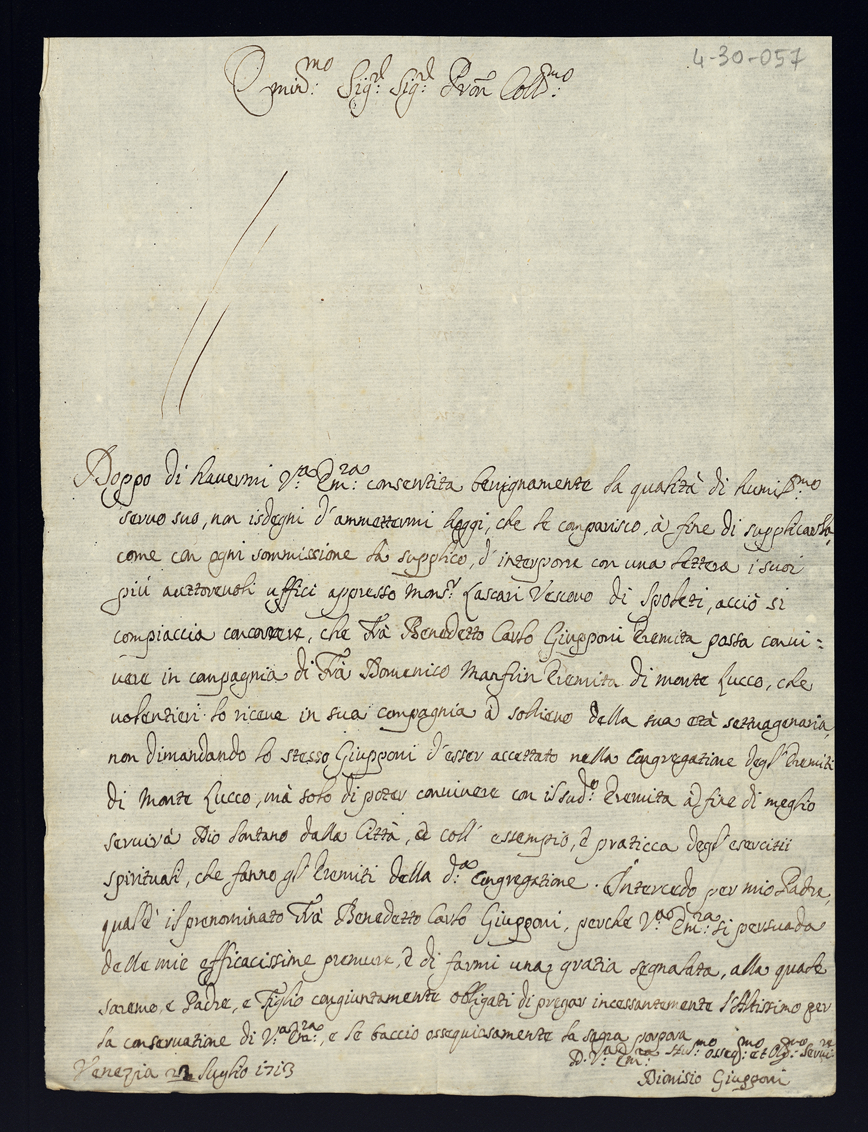 4-30-057
Emin:mo Sig:r Sig:r Pron Coll:mo
Doppo di havermi V:a Em:za consentita benignamente la qualità di humiss:mo
servo suo, non isdegni d'ammettermi hoggi, che le comparisco, à fine di supplicarla,
come con ogni sommissione la supplico, d'interporre con una lettera i suoi
più auttorevoli uffici appresso Mons:r Lascari Vescovo di Spoleti, acciò si
compiaccia concorrere, che Frà Benedetto Carlo Giupponi Eremita possa convi:
vere in compagnia di Frà Domenico Manfrin Eremita di monte Lucco, che
volentieri lo riceve in sua compagnia à sollievo della sua età settuagenaria,
non dimandando lo stesso Giupponi d'esser accettato nella Congregatione degl'Eremiti
di Monte Lucco, mà solo di poter convivere con il sud:o Eremita à fine di meglio
servir à Dio lontano dalla Città, è coll' essempio, è praticca degl'esercitii
spirituali, che fanno gl'Eremiti della d:a Congregatione. Intercedo per mio Padre,
qual'è il prenominato Frà Benedetto Carlo Giupponi, perche V:a Em:za si persuada
delle mie efficacissime premure, è di farmi una gratia segnalata, alla quale
saremo, e Padre, e Figlio congiuntamente obligati di pregar incessantemente l'Altissimo per
la conservatione di V:a Em:za, e le baccio ossequiosamente la sagra porpora
D. V:a Em:za Hu:mo osseq:mo et Obl:mo Serv:re
Venezia 22 luglio 1713
Dionisio Giupponi